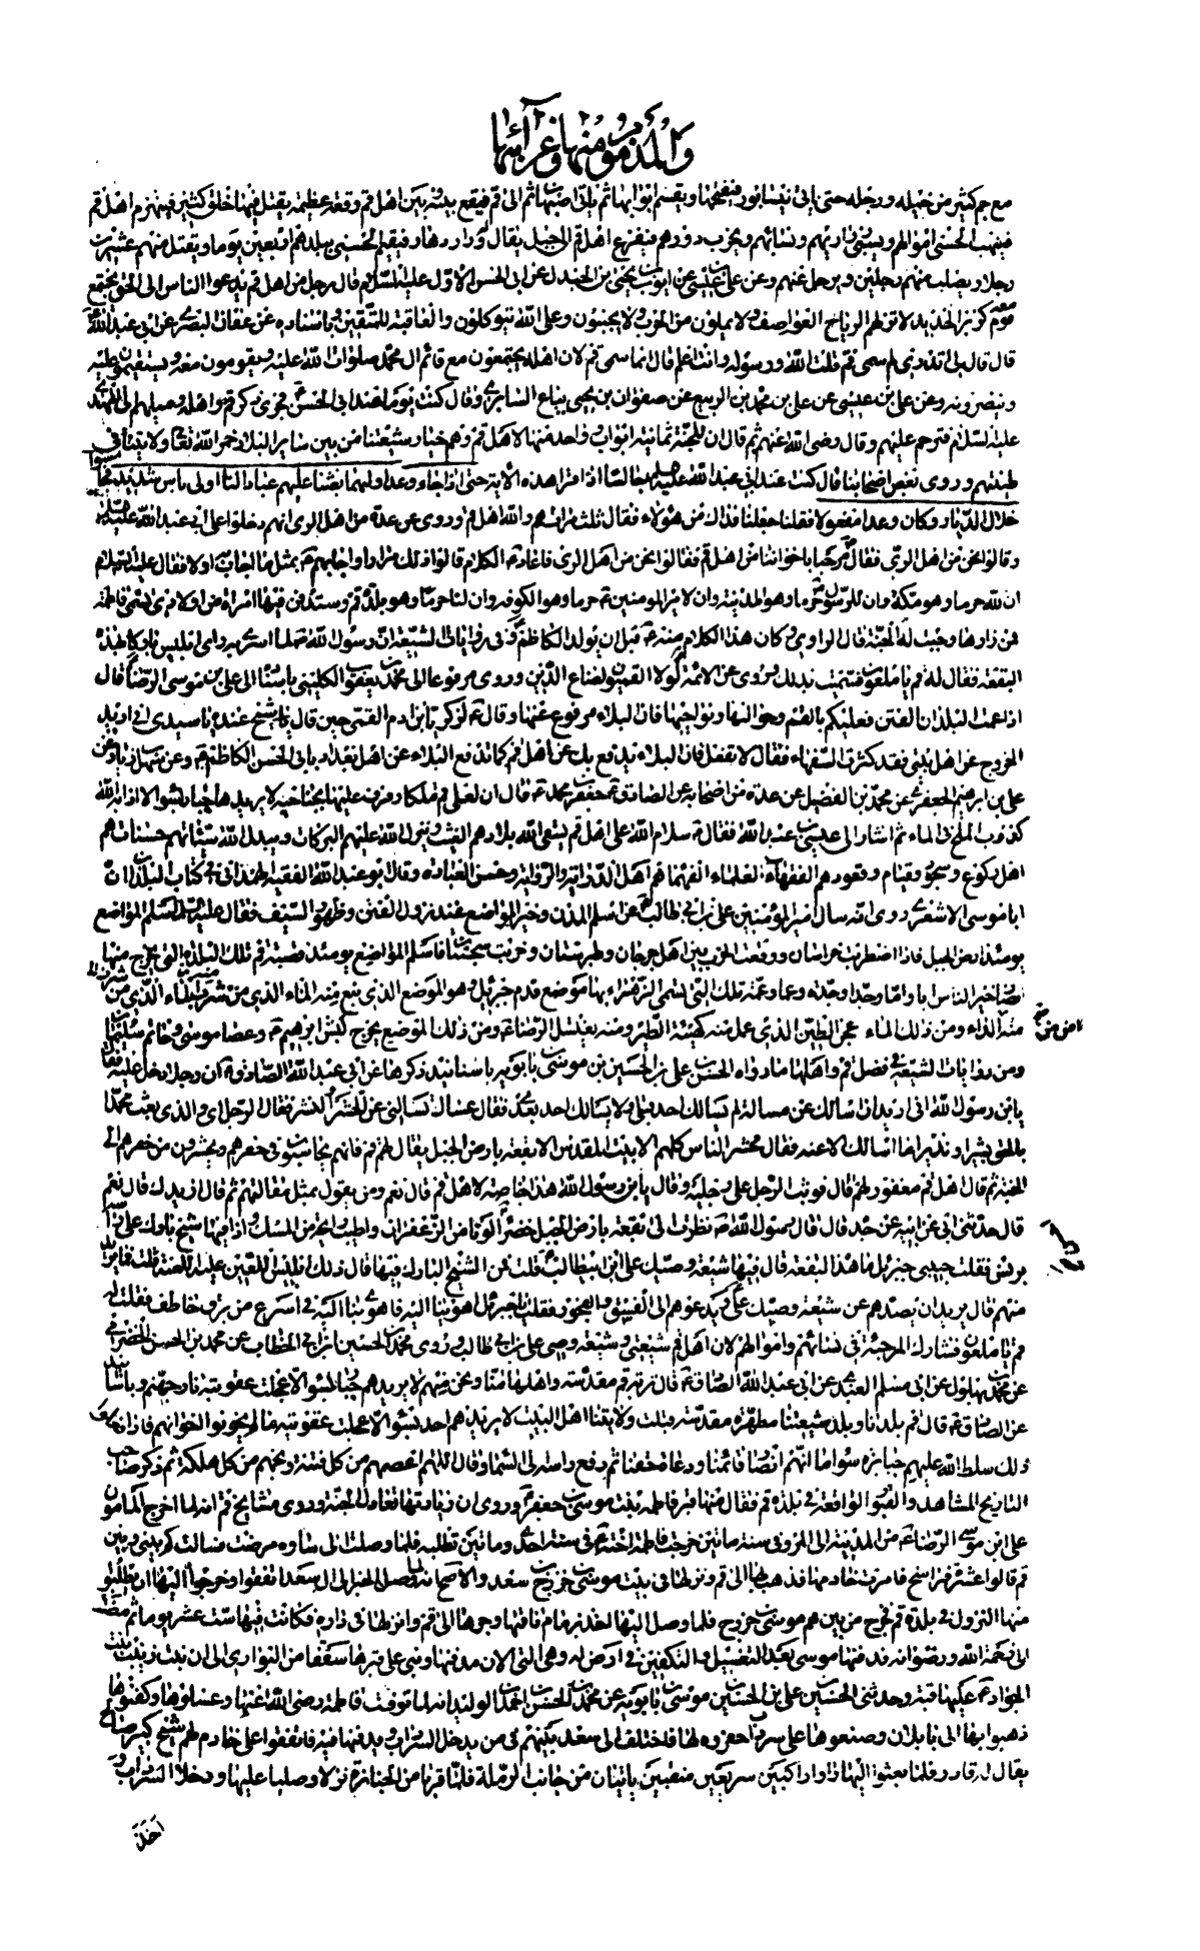 والمذموم منها وغرائبها
مع جم كثير من خيله ورجله حتى يأتي نيشابور فيفتحها ويقسم أبوابها ثم يأتي أصبهان ثم إلى قم فيقع بينه وبين أهل قم وقعة عظيمة يقتل فيها خلق كثير فينهزم أهل قم
فينهب الحسني أموالهم ويسبي ذراريهم ونسائهم ويخرب دورهم فيفزع أهل قم إلى جبل يقال لها وراردهار فيقيم الحسني ببلدهم أربعين يوما ويقتل منهم عشرين
رجلا ويصلب منهم رجلين ويرحل عنهم وعن علي بن عيسى عن أيوب بن يحيى بن الجندل عن أبي الحسن الأول عليه السلام قال رجل من أهل قم يدعوا الناس إلى الحق يجتمع
معه قوم كزبر الحديد لا تزلهم الرياح العواصف ولا يملون من الحرب ولا يجبنون وعلى الله يتوكلون والعاقبة للمتقين وبإسناده عن عفان البصري عن أبي عبد الله
قال قال لي أتدري لم سمي قم قلت الله ورسوله وأنت أعلم قال إنما سمي قم لأن أهله يجتمعون مع قائم آل محمد صلوات الله عليه ويقومون معه ويستقيمون عليه
وينصرونه وعن علي بن عيسى عن علي بن محمد بن الربيع عن صفوان بن يحيى بياع السابري قال كنت يوما عند أبي الحسن فجرى ذكر قم وأهله وميلهم إلى المهدي
عليه السلام فترحم عليهم وقال رضي الله عنهم ثم قال إن للجنة ثمانية أبواب وواحد منها لأهل قم وهم خيار شيعتنا من بين سائر البلاد خمر الله تعالى ولايتنا في
طينتهم وروى بعض أصحابنا قال كنت عند أبي عبد الله عليه السلام جالسا إذ قرأ هذه الآية حتى إذا جاء وعد أوليهما بعثنا عليكم عبادا لنا أولي بأس شديد فجاسوا
خلال الديار وكان وعدا مفعولا فقلنا جعلنا فداك من هؤلاء فقال ثلث مرات هم والله أهل قم وروي عن عدة من أهل الري أنهم دخلوا على أبي عبد الله عليه السلام
وقالوا نحن من أهل الري فقال مرحبا بإخواننا من أهل قم فقالوا نحن من أهل الري فأعاد الكلام قالوا ذلك مرارا وأجابهم بمثل ما أجاب به أولا فقال عليه السلام
إن لله حرما وهو مكة وإن للرسول حرما وهو المدينة وإن لأمير المؤمنين حرما وهو الكوفة وإن لنا حرما وهو بلدة قم وستدفن فيها امرأة من أولادي تسمى فاطمة
فمن زارها وجبت له الجنة قال الراوي وكان هذا الكلام منه قبل أن يولد الكاظم وفي روايات الشيعة أن رسول الله لما أسري به رأى إبليس باركا بهذه
البقعة فقال له قم يا ملعون فسميت بذلك وروي عن الأئمة لولا القميون لضاع الدين وروي مرفوعا إلى محمد بن يعقوب الكليني بإسناده إلى علي بن موسى الرضا قال
إذا عمت البلدان الفتن فعليكم بالقم وحواليها ونواحيها فإن البلاء مرفوع عنها وقال لزكريا بن آدم القمي حين قال الشيخ عنده يا سيدي إني أريد
الخروج عن أهل بيتي فقد كثرت السفهاء فقال لا تفعل فإن البلاء يدفع بك عن أهل قم كما يدفع البلاء عن أهل بغداد بأبي الحسن الكاظم وعن سهل بن زياد عن
علي بن إبراهيم الجعفري عن محمد بن الفضيل عن عدة من أصحابه عن الصادق جعفر بن محمد قال إن لعلى قم ملكا رفرف عليها بجناحيه لا يريدها جبار بسوء إلا أذابه الله
كذوب الملح في الماء ثم أشار إلى عيسى بن عبد الله فقال سلام الله على أهل قم يسقي الله بلادهم الغيث وينزل الله عليهم البركات ويبدل الله سيئاتهم حسنات هم
أهل ركوع وسجود وقيام وقعود هم الفقهاء العلماء الفهماء هم أهل الدراية والرواية وحسن العبادة وقال أبو عبد الله الفقيه الهمداني في كتاب البلدان إن
أبا موسى الأشعري روى أنه سأل أمير المؤمنين علي بن أبي طالب عن أسلم المدن وخير المواضع عند نزول الفتن وظهور السيف فقال عليه السلام أسلم المواضع
يومئذ أرض الجبل فإذا اضطربت خراسان ووقعت الحرب بين أهل جرجان وطبرستان وخربت سجستان فأسلم المواضع يومئذ قصبة قم تلك البلدة التي يخرج منها
أنصار خير الناس أبا وأما وجدا وجدة وعما وعمة تلك التي تسمى الزهراء بها موضع قدم جبرئيل وهو الموضع الذي نبع منه الماء الذي من شرب منه
أمن من الداء ومن ذلك الماء عجن الطين الذي عمل منه كهيئة الطير ومنه يغتسل الرضا ومن ذلك الموضع يخرج كبش إبراهيم وعصا موسى وخاتم سليمان
ومن روايات الشيعة في فضل قم وأهلها ما رواه الحسن بن علي بن الحسين بن موسى بن بابويه بأسانيد ذكرها عن أبي عبد الله الصادق أن رجلا دخل عليه فقال
يا بن رسول الله إني أريد أن أسألك عن مسألة لم يسألك أحد قبلي ولا يسألك أحد بعدي فقال عساك تسألني عن الحشر والنشر فقال الرجل إي والذي بعث محمدا
بالحق بشيرا ونذيرا ما أسألك إلا عنه فقال محشر الناس كلهم إلى بيت المقدس إلا بقعة بأرض الجبل يقال لها قم فإنهم يحاسبون في حفرهم ويحشرون من حفرهم إلى
الجنة ثم قال أهل قم مغفور لهم قال فوثب الرجل على رجليه وقال يا بن رسول الله هذا خاصة لأهل قم قال نعم ومن يقول بمثل مقالتهم ثم قال أزيدك قال نعم
قال حدثني أبي عن أبيه عن جده قال قال رسول الله نظرت إلى بقعة بأرض الجبل خضراء أحسن لونا من الزعفران وأطيب رائحة من المسك وإذا فيها شيخ بارك على رأسه
برنس فقلت حبيبي جبرئيل ما هذه البقعة قال فيها شيعة وصيك علي بن أبي طالب قلت فمن الشيخ البارك فيها قال ذلك إبليس اللعين عليه اللعنة قلت فما يريد
منهم قال يريد أن يصدهم عن شيعة وصيك علي ويدعوهم إلى الفسق والفجور فقلت يا جبرئيل أهو بنا إليه فأهوى بنا إليه في أسرع من برق خاطف فقلت له
قم يا ملعون فشارك المرجئة في نسائهم وأموالهم لأن أهل قم شيعتي وشيعة وصيي علي بن أبي طالب وروى محمد بن الحسين بن أبي الخطاب عن محمد بن الحسن الحضرمي
عن محمد بن بهلول عن أبي مسلم العبدي عن أبي عبد الله الصادق قال تربة قم مقدسة وأهلها منا ونحن منهم لا يريدهم جبار بسوء إلا عجلت عقوبته
عن الصادق قال قم بلدنا وبلد شيعتنا مطهرة مقدسة قبلت ولايتنا أهل البيت لا يريدهم أحد بسوء إلا عجلت عقوبته ما لم يخونوا إخوانهم فإذا فعلوا
ذلك سلط الله عليهم جبابرة سوء أما إنهم أنصار قائمنا ودعاة حقنا ثم رفع رأسه إلى السماء وقال اللهم اعصمهم من كل فتنة ونجهم من كل هلكة ثم ذكر صاحب
التاريخ المشاهد والقبور الواقعة في بلدة قم فقال منها قبر فاطمة بنت موسى بن جعفر وروي أن زيارتها تعادل الجنة وروى مشايخ قم أنه لما أخرج المأمون
علي بن موسى الرضا من المدينة إلى المرو في سنة مائتين خرجت فاطمة أخته في سنة إحدى ومائتين تطلبه فلما وصلت إلى ساوه مرضت فسألت كم بيني وبين
قم قالوا عشرة فراسخ فأمرت خادمها فذهب بها إلى قم وأنزلها في بيت موسى بن خزرج بن سعد والأصح أنه لما وصل الخبر إلى آل سعد اتفقوا وخرجوا إليها أن يطلبوا
منها النزول في بلدة قم فخرج من بينهم موسى بن خزرج فلما وصل إليها أخذ بزمام ناقتها وجرها إلى قم وأنزلها في داره فكانت فيها ستة عشر يوما ثم مضت
إلى رحمة الله ورضوانه فدفنها موسى بعد التغسيل والتكفين في أرض له وهي التي الآن مدفنها وبنى على قبرها سقفا من البواري إلى أن بنت زينب بنت
الجواد عليها قبة وحدثني الحسين بن علي بن الحسين بن موسى بن بابويه عن محمد بن الحسن بن أحمد بن الوليد أنه لما توفيت فاطمة رضي الله عنها وغسلوها وكفنوها
ذهبوا بها إلى بابلان ووضعوها على سرداب حفروه لها فاختلف آل سعد بينهم في من يدخل السرداب ويدفنها فيه فاتفقوا على خادم لهم شيخ كبير صالح
يقال له قادر فلما بعثوا إليه رأوا راكبين سريعين متلثمين يأتيان من جانب الرملة فلما قربا من الجنازة نزلا وصليا عليها ودخلا السرداب و
أخذا